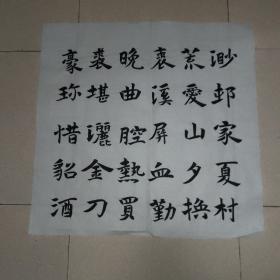 渺邨家夏村
荒愛山夕換
衰溪屏血勤
晚曲腔熱買
裘堪灑金刀
豪珎惜貂酒